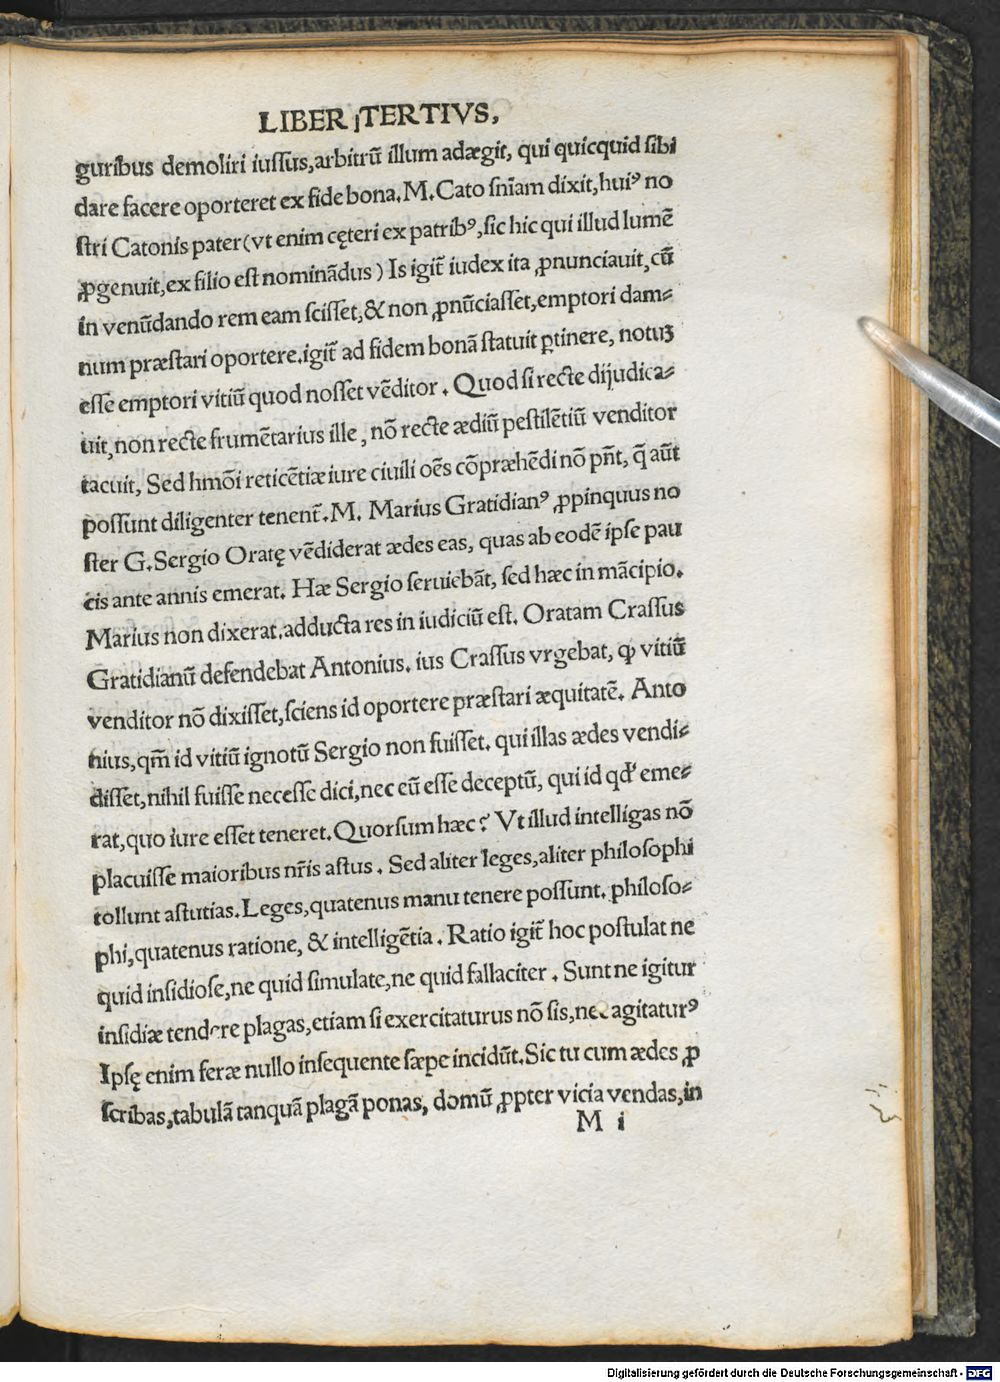 LIBER TERTIVS,
guribus demoliri iussus, arbitrũ illum adægit, qui quicquid sibi
dare facere oporteret ex fide bona. M. Cato sñiam dixit, huiꝰ no
stri Catonis pater (vt enim cęteri ex patribꝰ, sic hic qui illud lumẽ
ꝓgenuit, ex filio est nominãdus) Is igit̃ iudex ita ꝓnunciauit, cũ
in venũdando rem eam scisset, & non ꝓnũciasset, emptori dam⸗
num præstari oportere. igit̃ ad fidem bonã statuit ꝑtinere, notuꝫ
esse emptori vitiũ quod nosset vẽditor. Quod si recte dijudica⸗
uit, non recte frumẽtarius ille, nõ recte ædiũ pestilẽtiũ venditor
tacuit, Sed hmõi reticẽtiæ iure ciuili oẽs cõpræhẽdi nõ pñt, q̃ aũt
possunt diligenter tenent̃. M. Marius Gratidianꝰ ꝓpinquus no
ster G. Sergio Oratę vẽdiderat ædes eas, quas ab eodẽ ipse pau
cis ante annis emerat. Hæ Sergio seruiebãt, sed hæc in mãcipio.
Marius non dixerat. adducta res in iudiciũ est. Oratam Crassus
Gratidianũ defendebat Antonius. ius Crassus vrgebat, ꝙ vitiũ
venditor nõ dixisset, sciens id oportere præstari æquitatẽ. Anto
nius, qm̃ id vitiũ ignotũ Sergio non fuisset. qui illas ædes vendi⸗
disset, nihil fuisse necesse dici, nec eũ esse deceptũ, qui id qd' eme⸗
rat, quo iure esset teneret. Quorsum hæc? Vt illud intelligas nõ
placuisse maioribus nr̃is astus. Sed aliter leges, aliter philosophi
tollunt astutias. Leges, quatenus manu tenere possunt. philoso⸗
phi, quatenus ratione, & intelligẽtia. Ratio igit̃ hoc postulat ne
quid insidiose, ne quid simulate, ne quid fallaciter. Sunt ne igitur
insidiæ tendere plagas, etiam si exercitaturus nõ sis, nec agitaturꝰ
Ipsę enim feræ nullo insequente sæpe incidũt. Sic tu cum ædes ꝓ
scribas, tabulã tanquã plagã ponas, domũ ꝓpter vicia vendas, in
M i
Digitalisierung gefördert durch die Deutsche Forschungsgemeinschaft - DFG